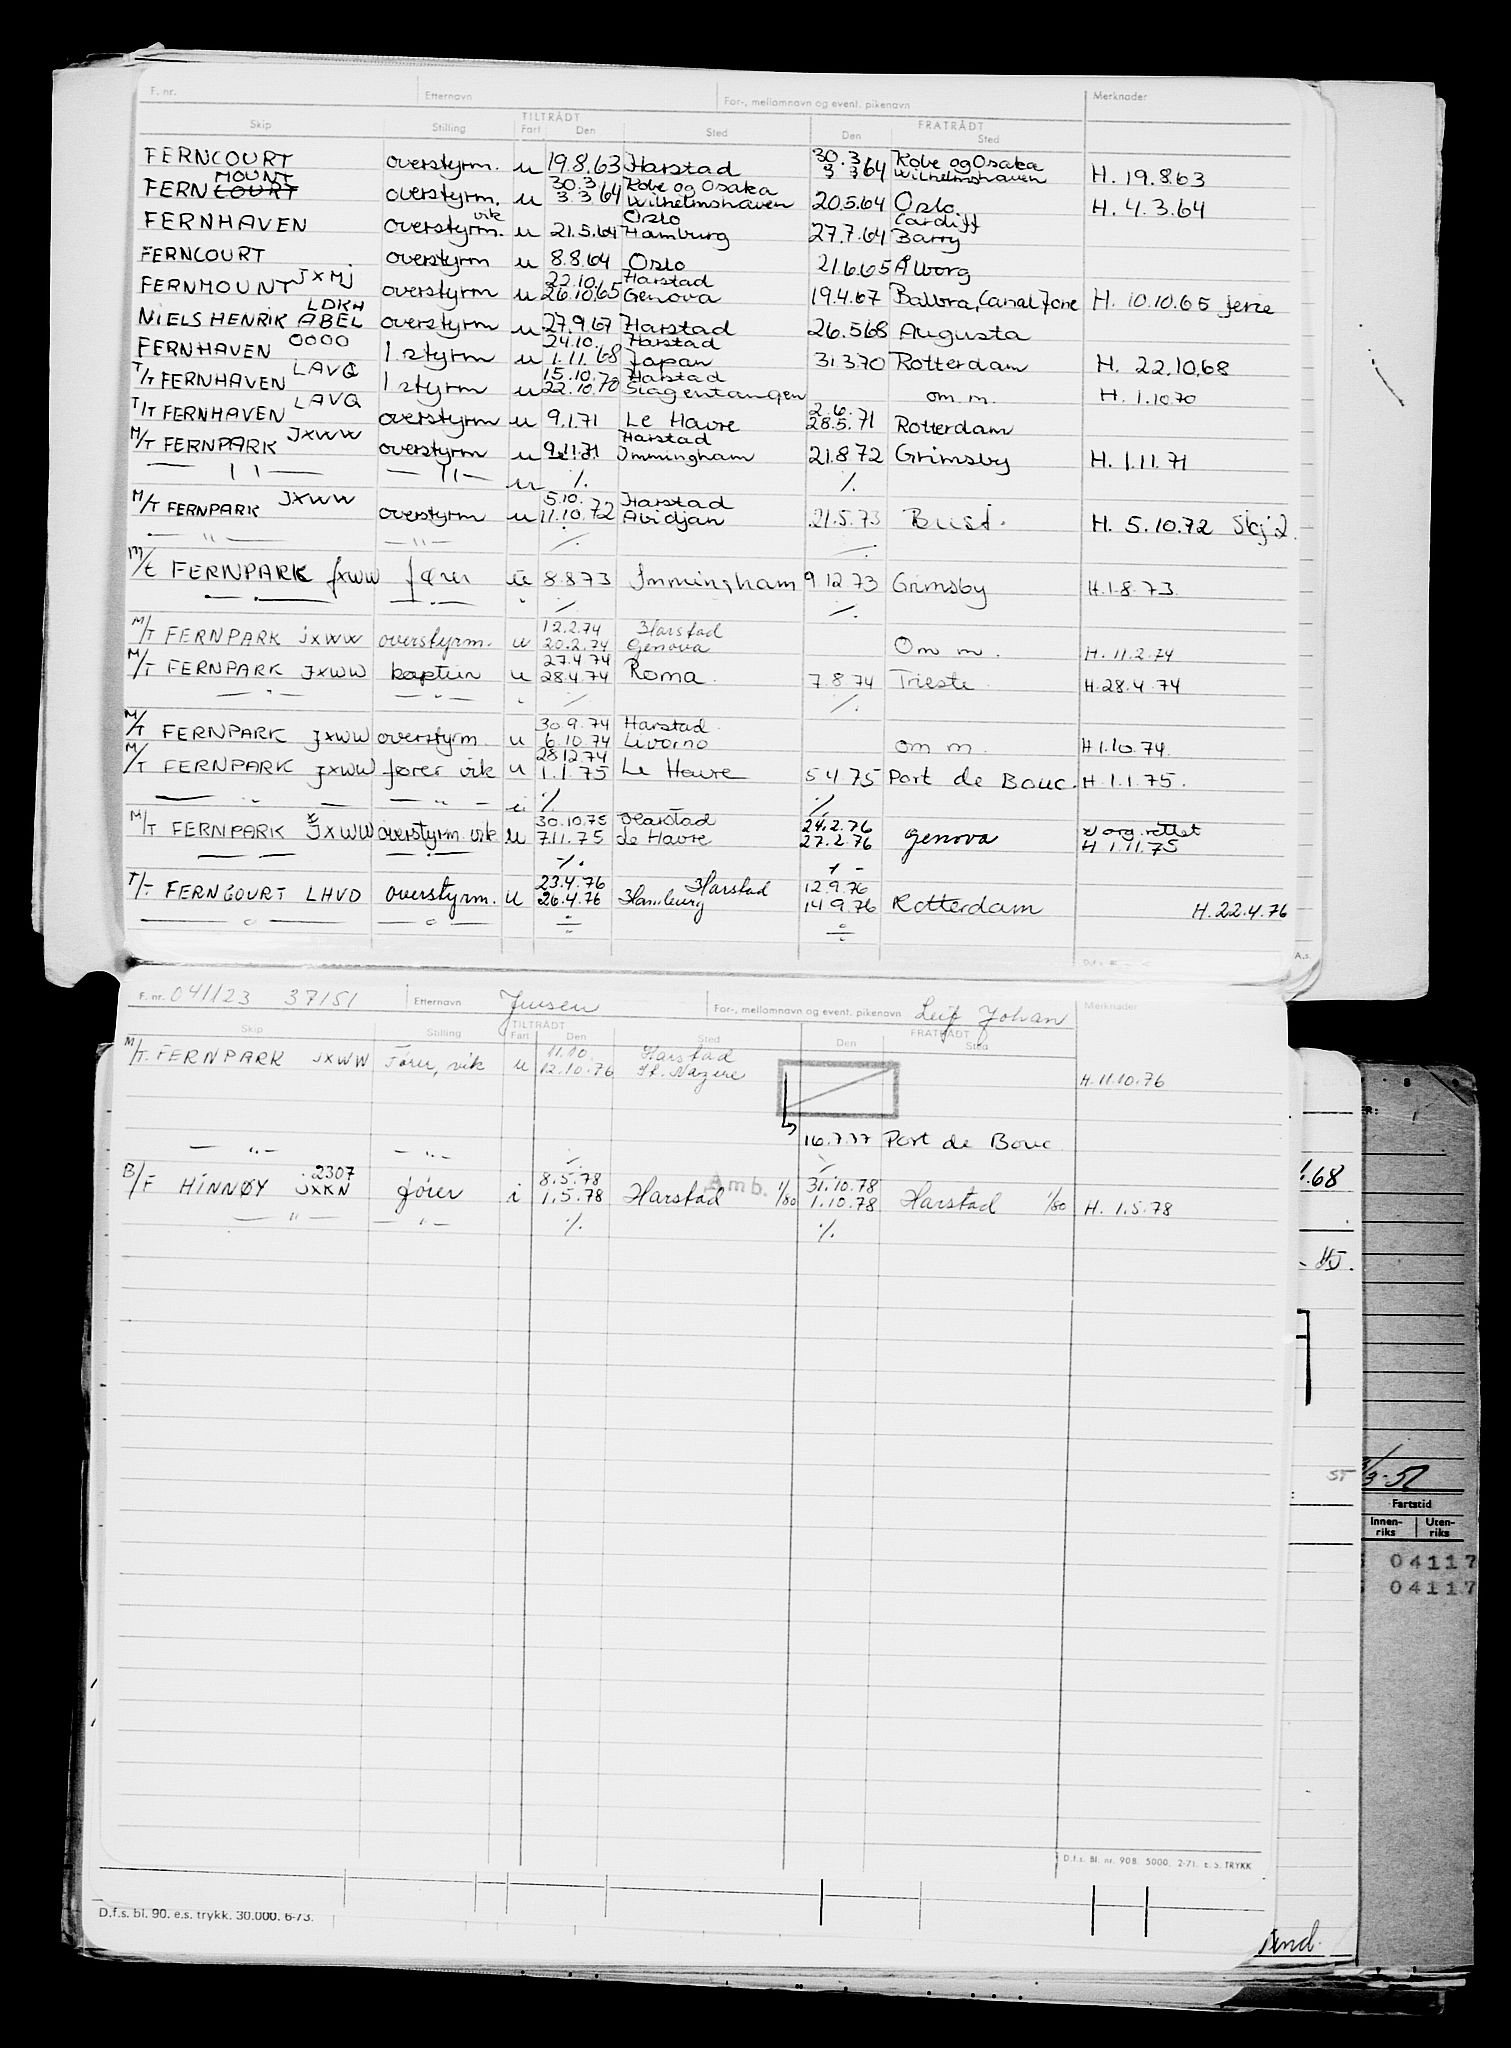 F. nr. Etternavn For-, mellomnavn og eventl. pikenavn Merknader
TILTRÅDT FRATRÅDT
Skip Stilling Fart Den Sted Den Sted
FERNCOURT overstyrm. u 19.8.63 Harstad 30.3 3 3 64 Kobe og Osaka Wilhelmshaven H. 19.8.63
MOUNT
FERN COURT overstyrm. u 30.3 3.3 64 Kobe og Osaka Wilhelmshaven 20.5.64 Oslo H. 4.3.64
FERNHAVEN overstyrm. vik u 21.5.64 Oslo Hamburg 27.7.64 Cardiff Barry
FERNCOURT overstyrm u 8.8.64 Oslo 21.6.65 Ålborg
FERNMOUNT JXMJ overstyrm u 22.10. 26.10.65 Harstad Genova 19.4.67 Balbra, Canal Zone H. 10.10.65 ferie
NIELS HENRIK ABEL LDKH overstyrm u 27.9.67 Harstad 26.5.68 Augusta
FERNHAVEN OOOO 1 styrm u 24.10. 1.11.68 Harstad Japan 31.3.70 Rotterdam H. 22.10.68
T/T FERNHAVEN LAVQ 1 styrm u 15.10.70 22.10.70 Harstad Slagentangen om m. H. 1.10.70
T/T FERNHAVEN LAVQ overstyrm u 9.1.71 Le Havre 2.6.71 28.5.71 Rotterdam
M/T FERNPARK JXWW overstyrm u 9.11.71 Harstad Immingham 21.8.72 Grimsby H. 1.11.71
— 11 — — 11 — u ./. ./.
M/T FERNPARK JXWW overstyrm u 5.10. 11.10.72 Harstad Avidjan 21.5.73 H. 5.10.72
— " — — " — ./. ./.
M/T FERNPARK JXWW fører u 8.8.73 Immingham 9.12.73 Grimsby H.1.8.73.
— . — — . — ./. ./.
M/T FERNPARK JXWW overstyrm. u 12.2.74 20.2.74 Harstad Genova Om m. H. 11.2.74
M/T FERNPARK JXWW kaptein u 27.4.74 28.4.74 Roma. 7.8.74 Trieste H.28.4.74
— " — — " — ./. ./.
M/T FERNPARK JXWW overstyrm. u 30.9.74 6.10.74 Harstad. Livorno om m. H 1.10.74.
M/T FERNPARK JXWW fører vik u 28.12.74 1.1.75 Le Havre 5.4.75 Port de Bouc. H. 1.1.75.
— " — — " — ./. ./.
M/T FERNPARK JXWW overstyrm. vik u 30.10.75 7.11.75 Harstad Le Havre 24.2.76 27.2.76 Genova x org. rettet H 1.11.75
— . — — . — ./.
T/T FERNCOURT LHVD overstyrm. u 23.4.76 26.4.76 Harstad Hamburg 12.9.76 14.9.76 Rotterdam H.22.4.76
— " — — " —
F. nr. 041123 37151 Etternavn Jensen For-, mellomnavn og eventl. pikenavn Leif Johan Merknader
TILTRÅDT FRATRÅDT
Skip Stilling Fart Den Sted Den Sted
M/T. FERNPARK JXWW Fører, vik u 11.10. 12.10.76 Harstad St. Nazere H. 11.10.76
16.7.77 Port de Bouc
— " — — " — ./. ./.
B/F HINNØY 2307 JXKN fører i 8.5.78 1.5.78 Harstad Amb. 1/80 31.10.78 1.10.78 Harstad 1/80 H. 1.5.78
— " — — " — ./. ./.
D.f.s. Bl. nr. 90B. 5000. 2-71. E. S. TRYKK
D.f.s. bl. 90. e.s. trykk. 30.000. 6-73.
3-51
Fartstid
Innen-riks Uten-riks
04117
04117